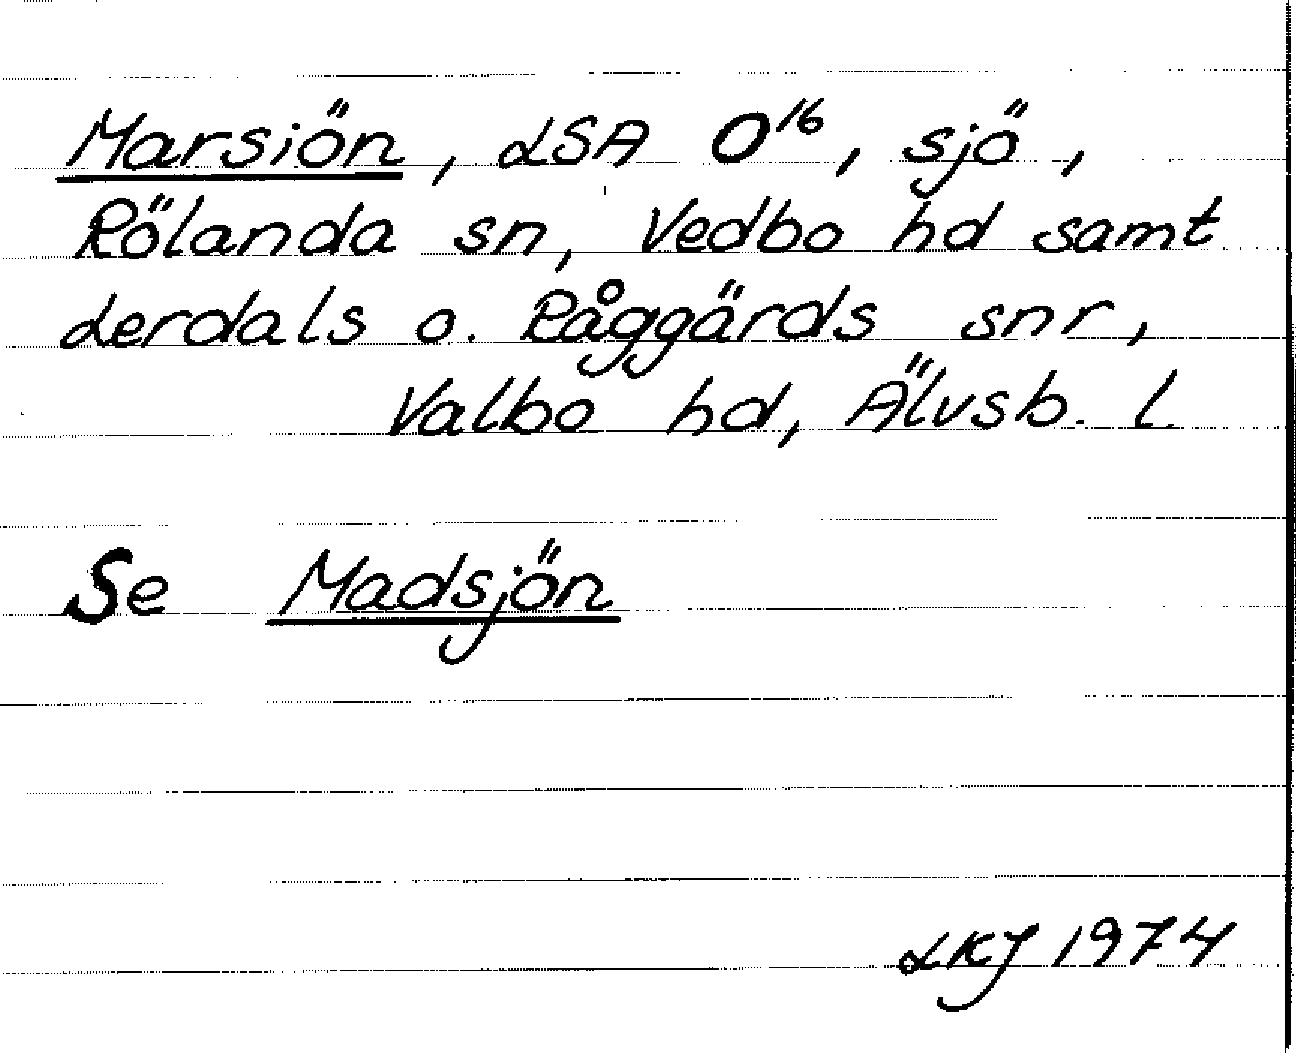 Marsiön, LSA O16, sjö,
Rölanda sn, Vedbo hd samt
Lerdals o. Råggärds snr,
Valbo hd, Älvsb. l.
Se Madsjön
LKJ 1974